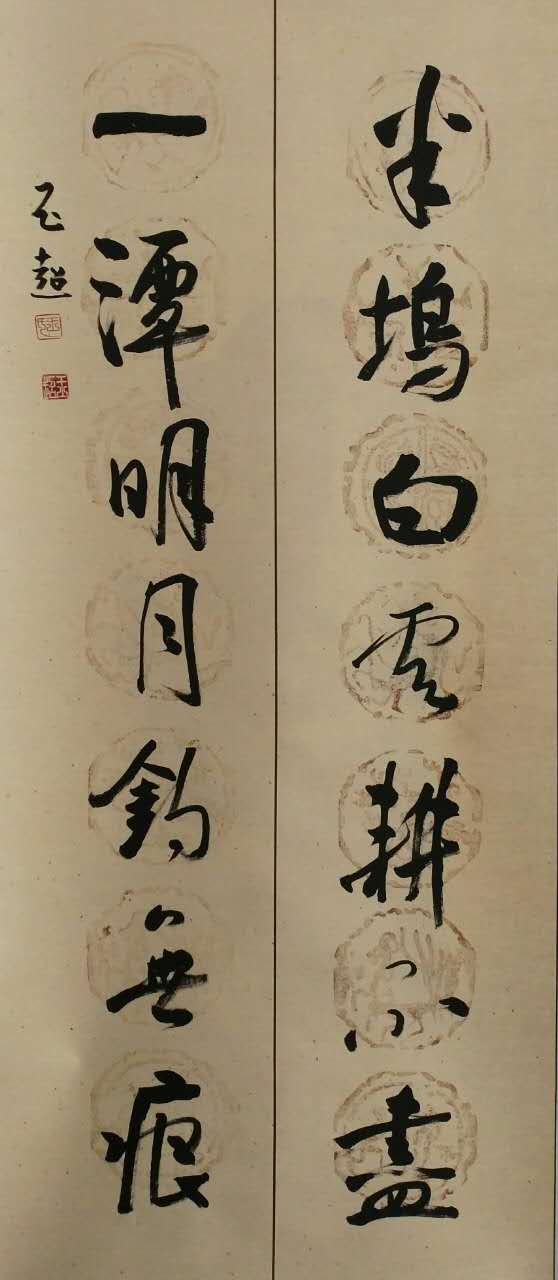 半塢白雲耕不盡
一潭明月釣無痕